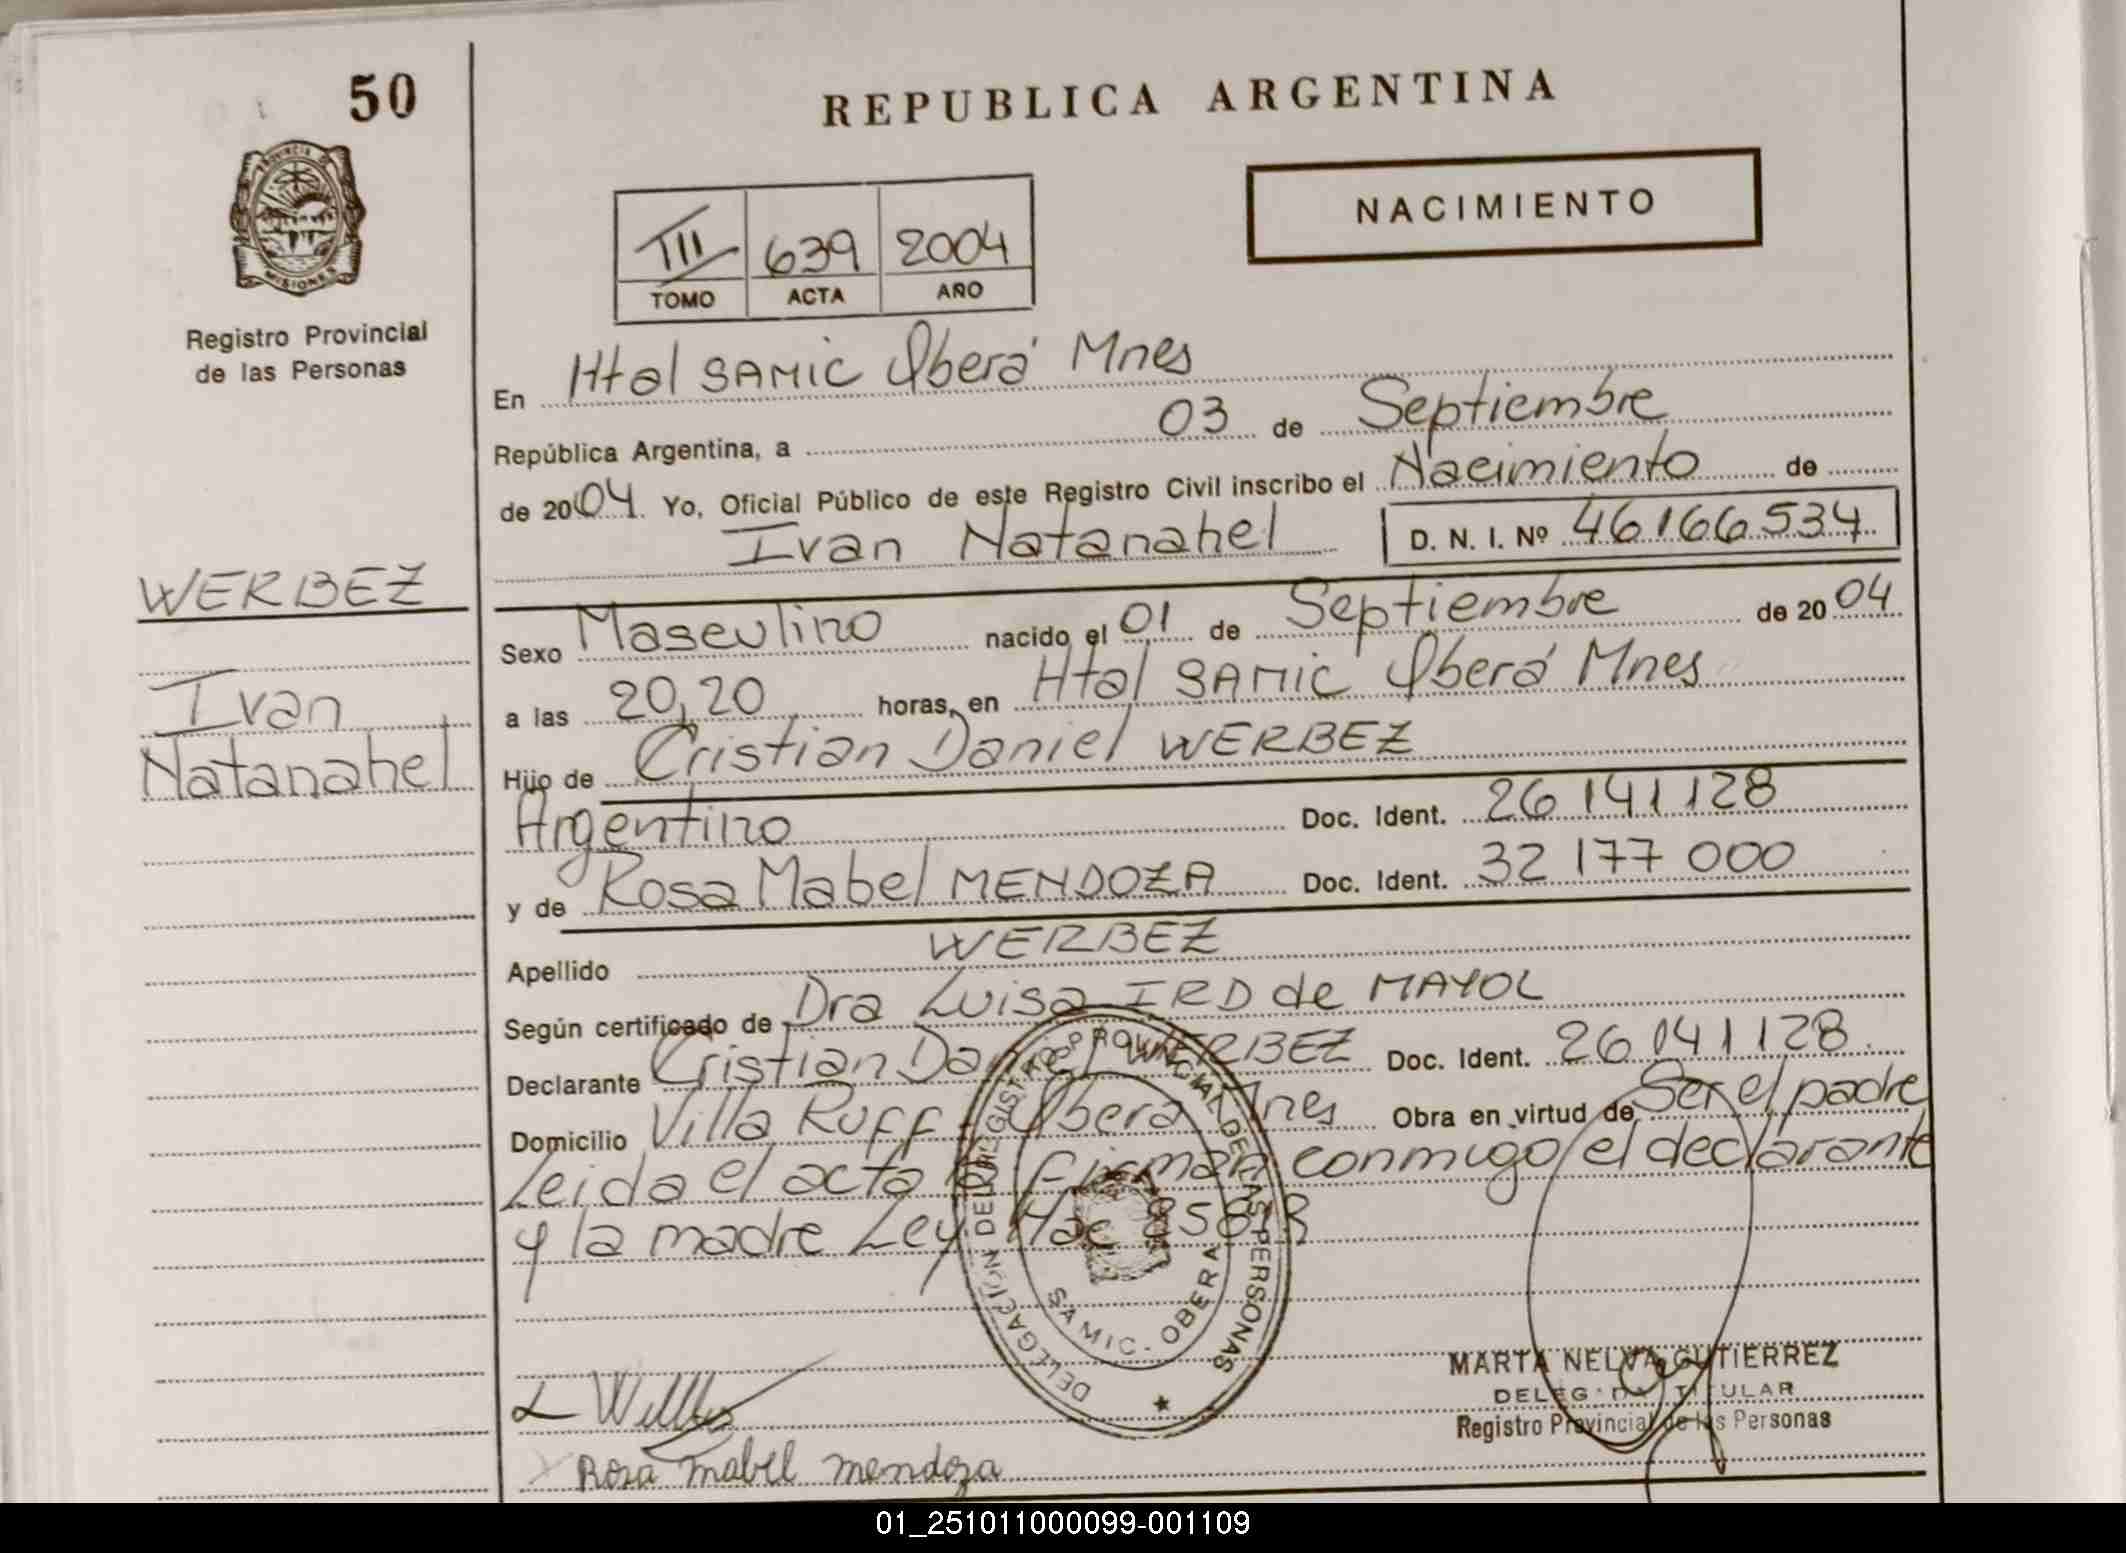 50
REPUBLICA ARGENTINA
NACIMIENTO
PROVINCIA DE MISIONES
III 639 2004
TOMO ACTA AÑO
Registro Provincial
de las Personas
En Htal SAMIC Oberá Mnes
República Argentina, a 03 de Septiembre
de 2004. Yo, Oficial Público de este Registro Civil inscribo el Nacimiento de
Ivan Natanahel D. N. I. Nº 46166534
WERBEZ
Ivan
Natanahel
Sexo Masculino nacido el 01 de Septiembre de 2004
a las 20,20 horas, en Htal SAMIC Oberá Mnes
Hijo de Cristian Daniel WERBEZ
Argentino Doc. Ident. 26 141 128
y de Rosa Mabel MENDOZA Doc. Ident. 32 177 000
Apellido WERBEZ
Según certificado de Dra Luisa IRD de MAYOL
Declarante Cristian Daniel WERBEZ Doc. Ident. 26 141 128
Domicilio Villa Ruff - Oberá Mnes Obra en virtud de Ser el padre
Leida el acta la firman conmigo el declarante
y la madre Ley Nac
DELEGACIÓN DEL REGISTRO PROVINCIAL DE LAS PERSONAS
SAMIC - OBERA
MARTA NELVA GUTIERREZ
DELEGADA TITULAR
Registro Provincial de las Personas
Rosa mabel mendoza
01_251011000099-001109